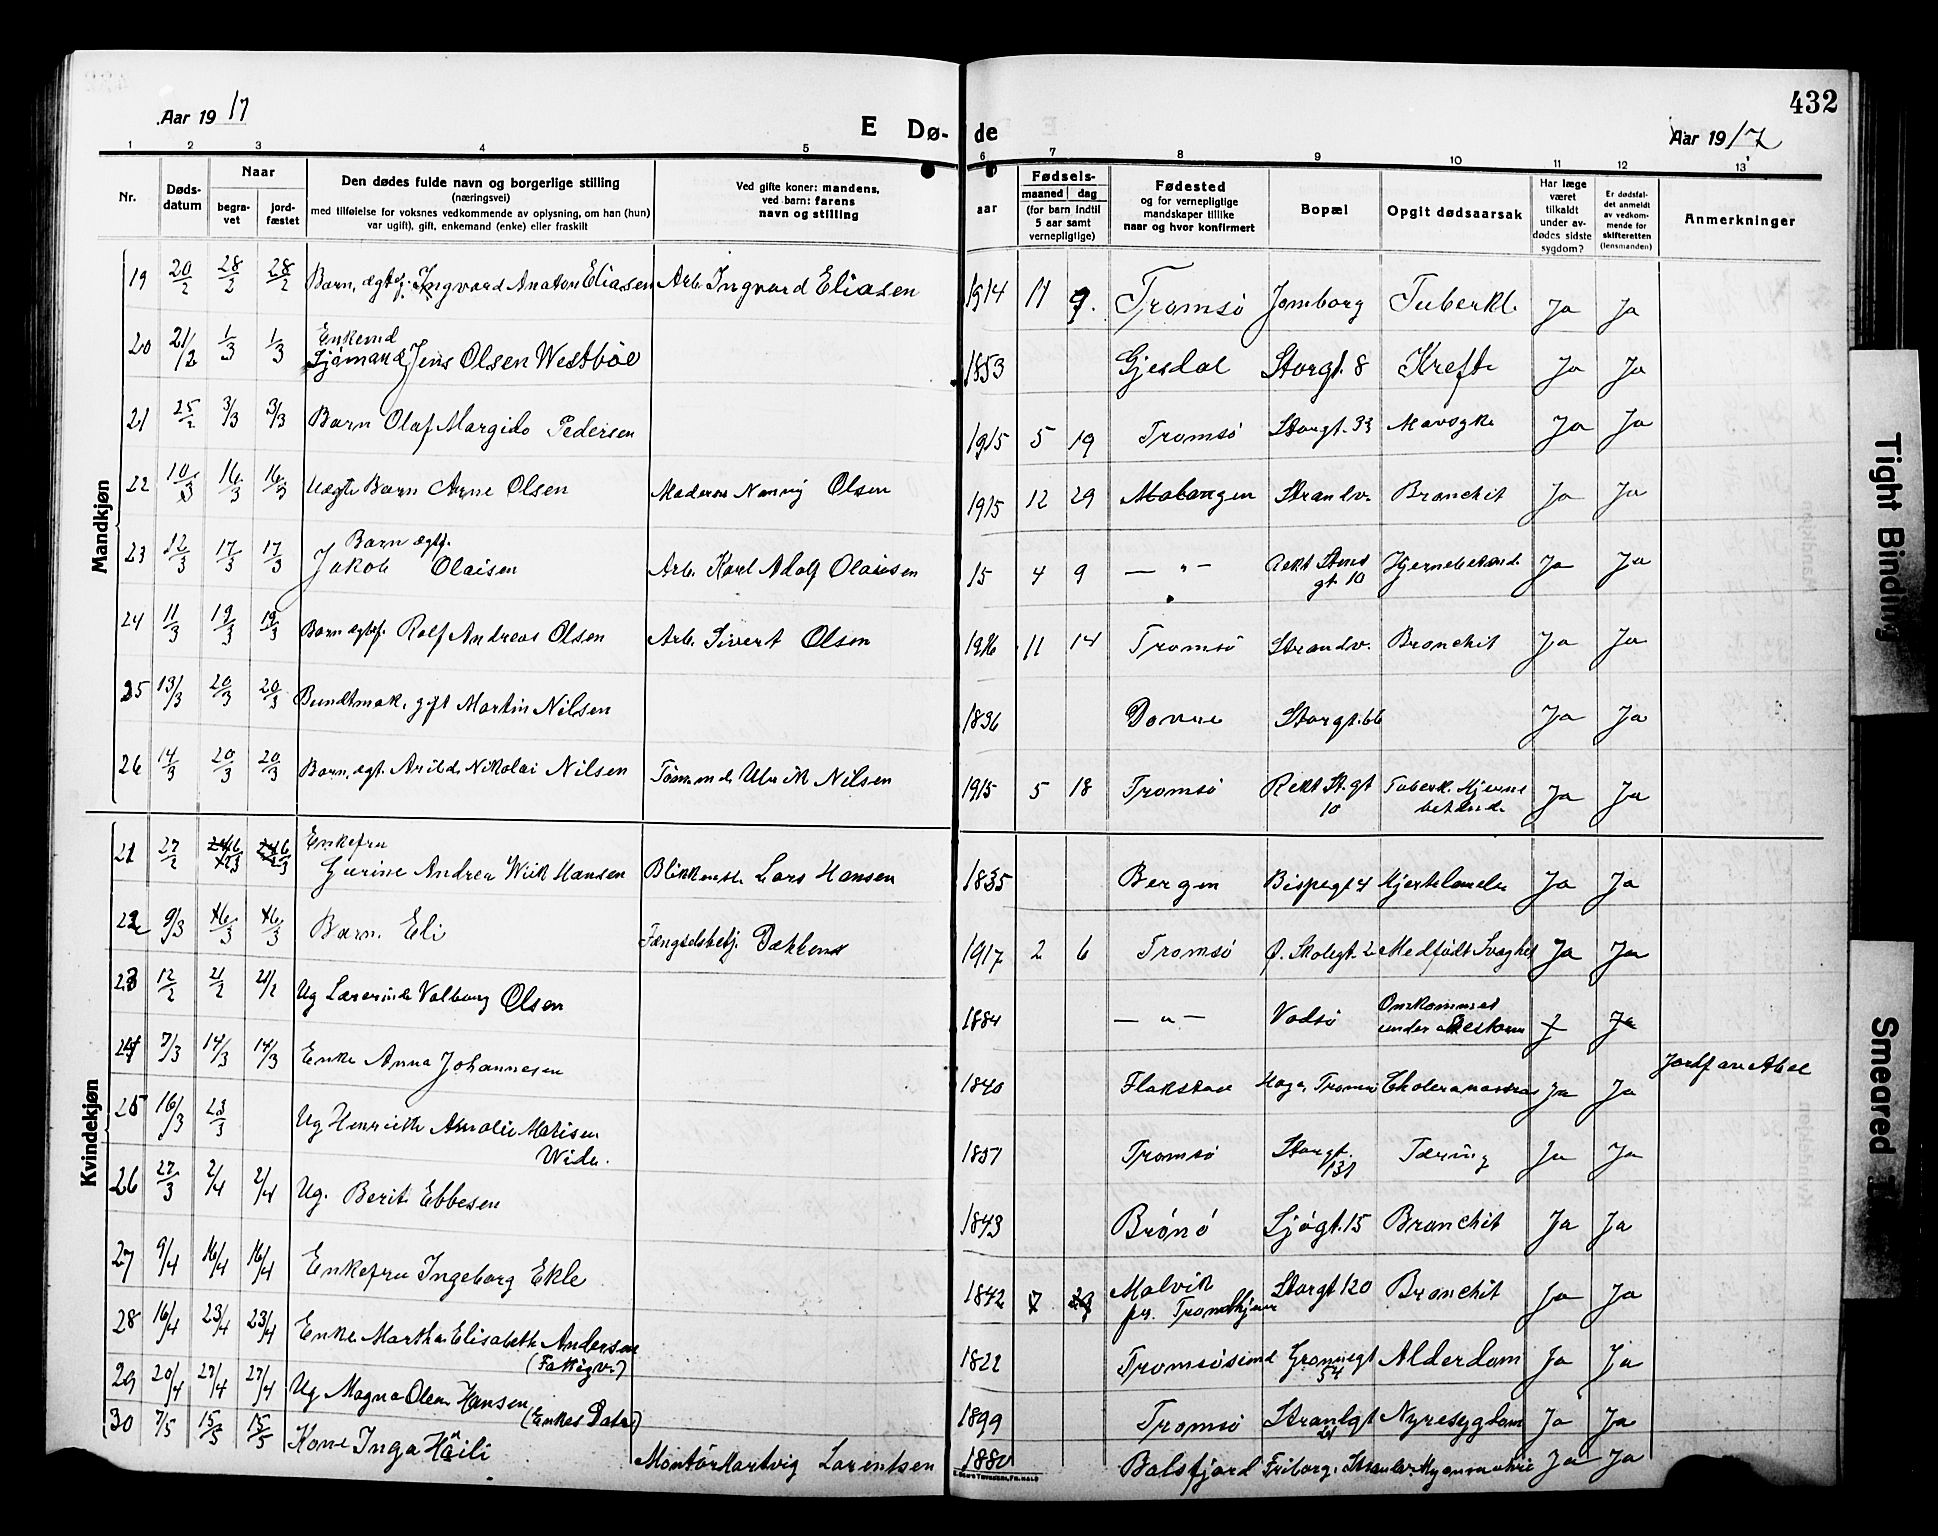 432
Aar 1917
E Dø- de
Aar 1917
1 2 3 4 5 6 7 8 9 10 11 12 13
Nr.
Døds-
datum
Naar
begra-
vet
jord-
fæstet
Den dødes fulde navn og borgerlige stilling
(næringsvei)
med tilføielse for voksnes vedkommende av oplysning, om han (hun)
var ugift), gift, enkemand (enke) eller fraskilt
Ved gifte koner: mandens,
ved barn: farens
navn og stilling
Fødsels-
aar
maaned dag
(for barn indtil
5 aar samt
vernepligtige)
Fødested
og for vernepligtige
mandskaper tillike
naar og hvor konfirmert
Bopæl
Opgit dødsaarsak
Har læge
været
tilkaldt
under av-
dødes sidste
sygdom?
Er dødsfal-
det anmeldt
av vedkom-
mende for
skifteretten
(lensmanden)
Anmerkninger
Mandkjøn
19 20/2 28/2 28/2 Barn, ægtef. Ingvard Anaton Eliasen Arb. Ingvard Eliasen 1914 11 9. Tromsø Jomborg Tuberkl. Ja Ja
20 21/2 1/3 1/3 Enkemd Sjømand Jens Olsen Westbøe 1853 Gjesdal Storgt. 8 Kreft Ja Ja
21 25/2 3/3 3/3 Barn Olaf Margido Pedersen 1915 5 19 Tromsø Storgt. 33 Mavsyke Ja Ja
22 10/3 16/3 16/3 Uægte Barn Arne Olsen Moderen Nanny Olsen 1915 12 29 Malangen Strandv. Bronchit Ja Ja
23 12/3 17/3 17/3 Barn ægtef. Jakob Olaisen Arb. Karl Adolf Olaisen 15 4 9 — " — gt 10 Hjernebetænd. Ja Ja
24 11/3 19/3 19/3 Barn ægtef. Rolf Andreas Olsen Arb. Sivert Olsen 1916 11 14 Tromsø Strandv. Bronchit Ja Ja
25 13/3 20/3 20/3 Bundtmak. gift Martin Nilsen 1836 Dovre Storgt. 66 Ja Ja
26 14/3 20/3 20/3 Barn, ægt. Arild Nikolai Nilsen Tømmermd. Ulrik Nilsen 1915 5 18 Tromsø Rekt St. gt 10 Tuberk. Hjerne betænd. Ja Ja
Kvindekjøn
21 27/2 6/3 6/3 Enkefru Gurine Andrea Wiik Hansen Blikkensl. Lars Hansen 1835 Bergen Bispegt 4 Hjertelamelse Ja Ja
22 9/3 16/3 16/3 Barn. Eli Fængselsbetj. Dækkens 1917 2 6 Tromsø Ø. Skolegt. 2 Medfødt Svaghet Ja Ja
23 12/2 21/2 21/2 Ug Lærerinde Valborg Olsen 1884 — " — Vadsø Omkommet under Ja
24 7/3 14/3 14/3 Enke Anna Johannesen 1840 Flakstad Tromsø Ja Ja
25 16/3 23/3 Ug Henriette Amalie Matisen Wide. 1857 Tromsø Storgt. 131 Tæring Ja Ja
26 27/3 2/4 2/4 Ug. Berit Ebbesen 1843 Brønø Sjøgt. 15 Bronchit Ja Ja
27 9/4 16/4 16/4 Enkefru Ingeborg Ekle 1842 Malvik pr. Trondhjem Storgt 120 Bronchit Ja Ja
28 16/4 23/4 23/4 Enke Martha Elisabeth Andersen (Fattigv.) 1822 Tromsøsund Grønnegt 54 Alderdom Ja Ja
29 20/4 27/4 27/4 Ug Magna Olea Hansen (Enkes Datr.) 1899 Tromsø Strandgt 21 Nyresygdom Ja Ja
30 7/5 15/5 15/5 Kone Inga Haili Montør Hartvig Larentsen 1880 Balsfjord Friborg, Strandv. Ja Ja
Tight Binding
Smeared